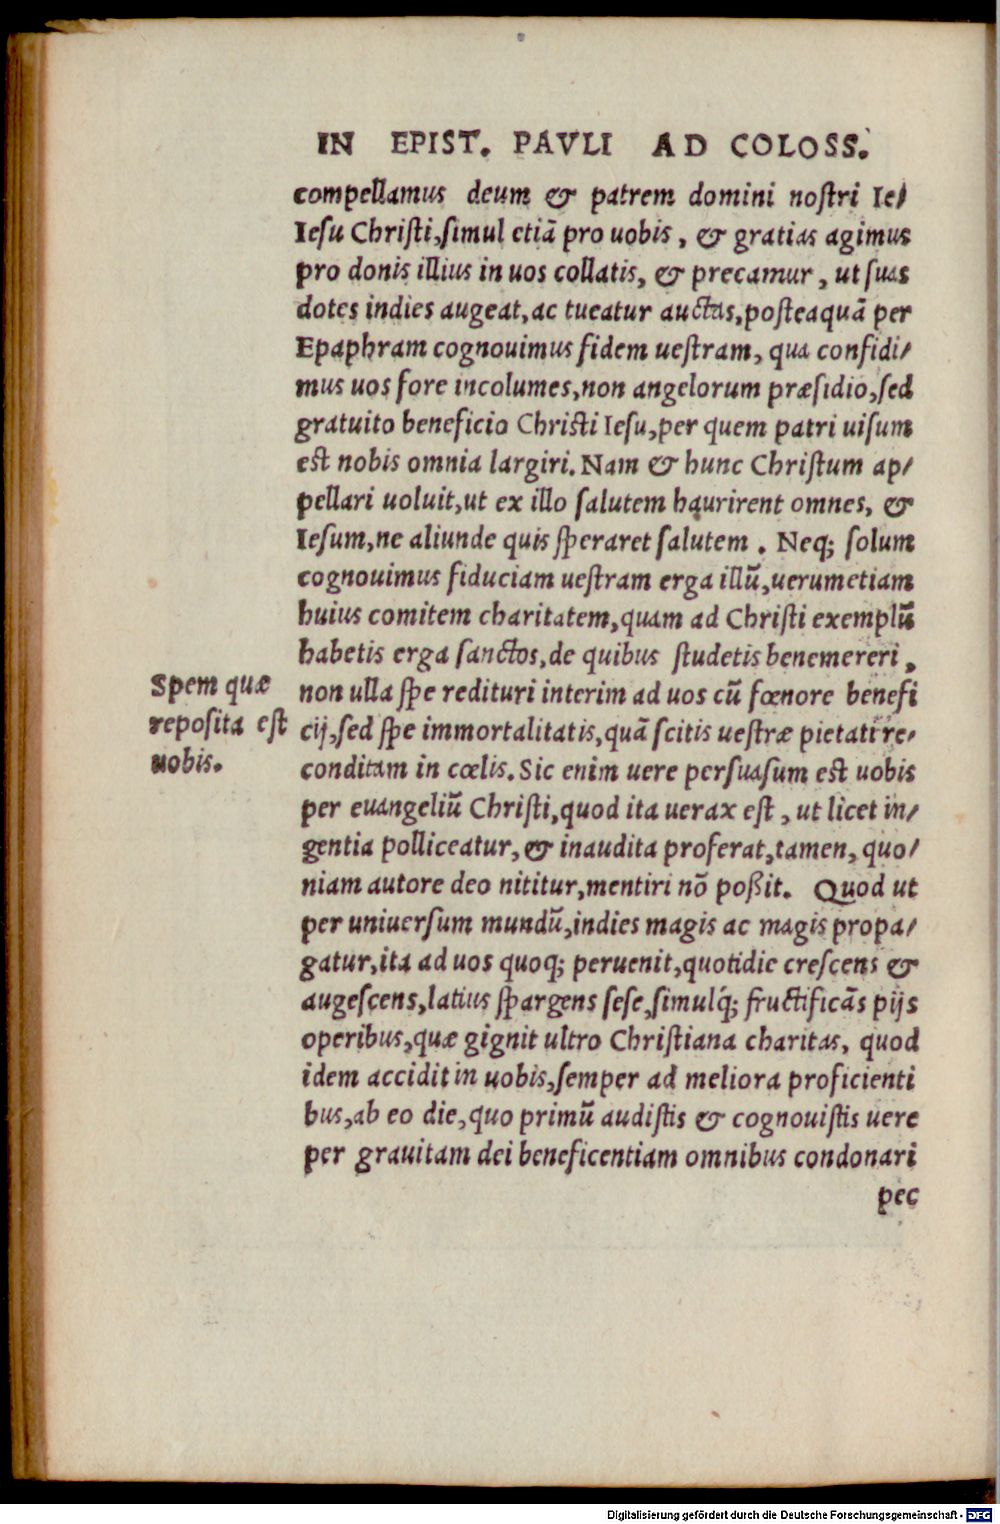 IN EPIST. PAVLI AD COLOSS.
compellamus deum & patrem domini nostri Ie/
Iesu Christi, simul etiā pro uobis, & gratias agimus
pro donis illius in uos collatis, & precamur, ut suas
dotes indies augeat, ac tueatur auctas, posteaquā per
Epaphram cognouimus fidem uestram, qua confidi/
mus uos fore incolumes, non angelorum præsidio, sed
gratuito beneficio Christi Iesu, per quem patri uisum
est nobis omnia largiri. Nam & hunc Christum ap/
pellari uoluit, ut ex illo salutem haurirent omnes, &
Iesum, ne aliunde quis speraret salutem. Neq; solum
cognouimus fiduciam uestram erga illū, uerumetiam
huius comitem charitatem, quam ad Christi exemplū
habetis erga sanctos, de quibus studetis benemereri,
Spem quæ
reposita est
uobis.
non ulla spe redituri interim ad uos cū fœnore benefi
cij, sed spe immortalitatis, quā scitis uestræ pietati re/
conditam in cœlis. Sic enim uere persuasum est uobis
per euangeliū Christi, quod ita uerax est, ut licet in/
gentia polliceatur, & inaudita proferat, tamen, quo/
niam autore deo nititur, mentiri nō poßit. Quod ut
per uniuersum mundū, indies magis ac magis propa/
gatur, ita ad uos quoq; peruenit, quotidie crescens &
augescens, latius spargens sese, simulq́; fructificās pijs
operibus, quæ gignit ultro Christiana charitas, quod
idem accidit in uobis, semper ad meliora proficienti
bus, ab eo die, quo primū audistis & cognouistis uere
per grauitam dei beneficentiam omnibus condonari
pec
Digitalisierung gefördert durch die Deutsche Forschungsgemeinschaft - DFG